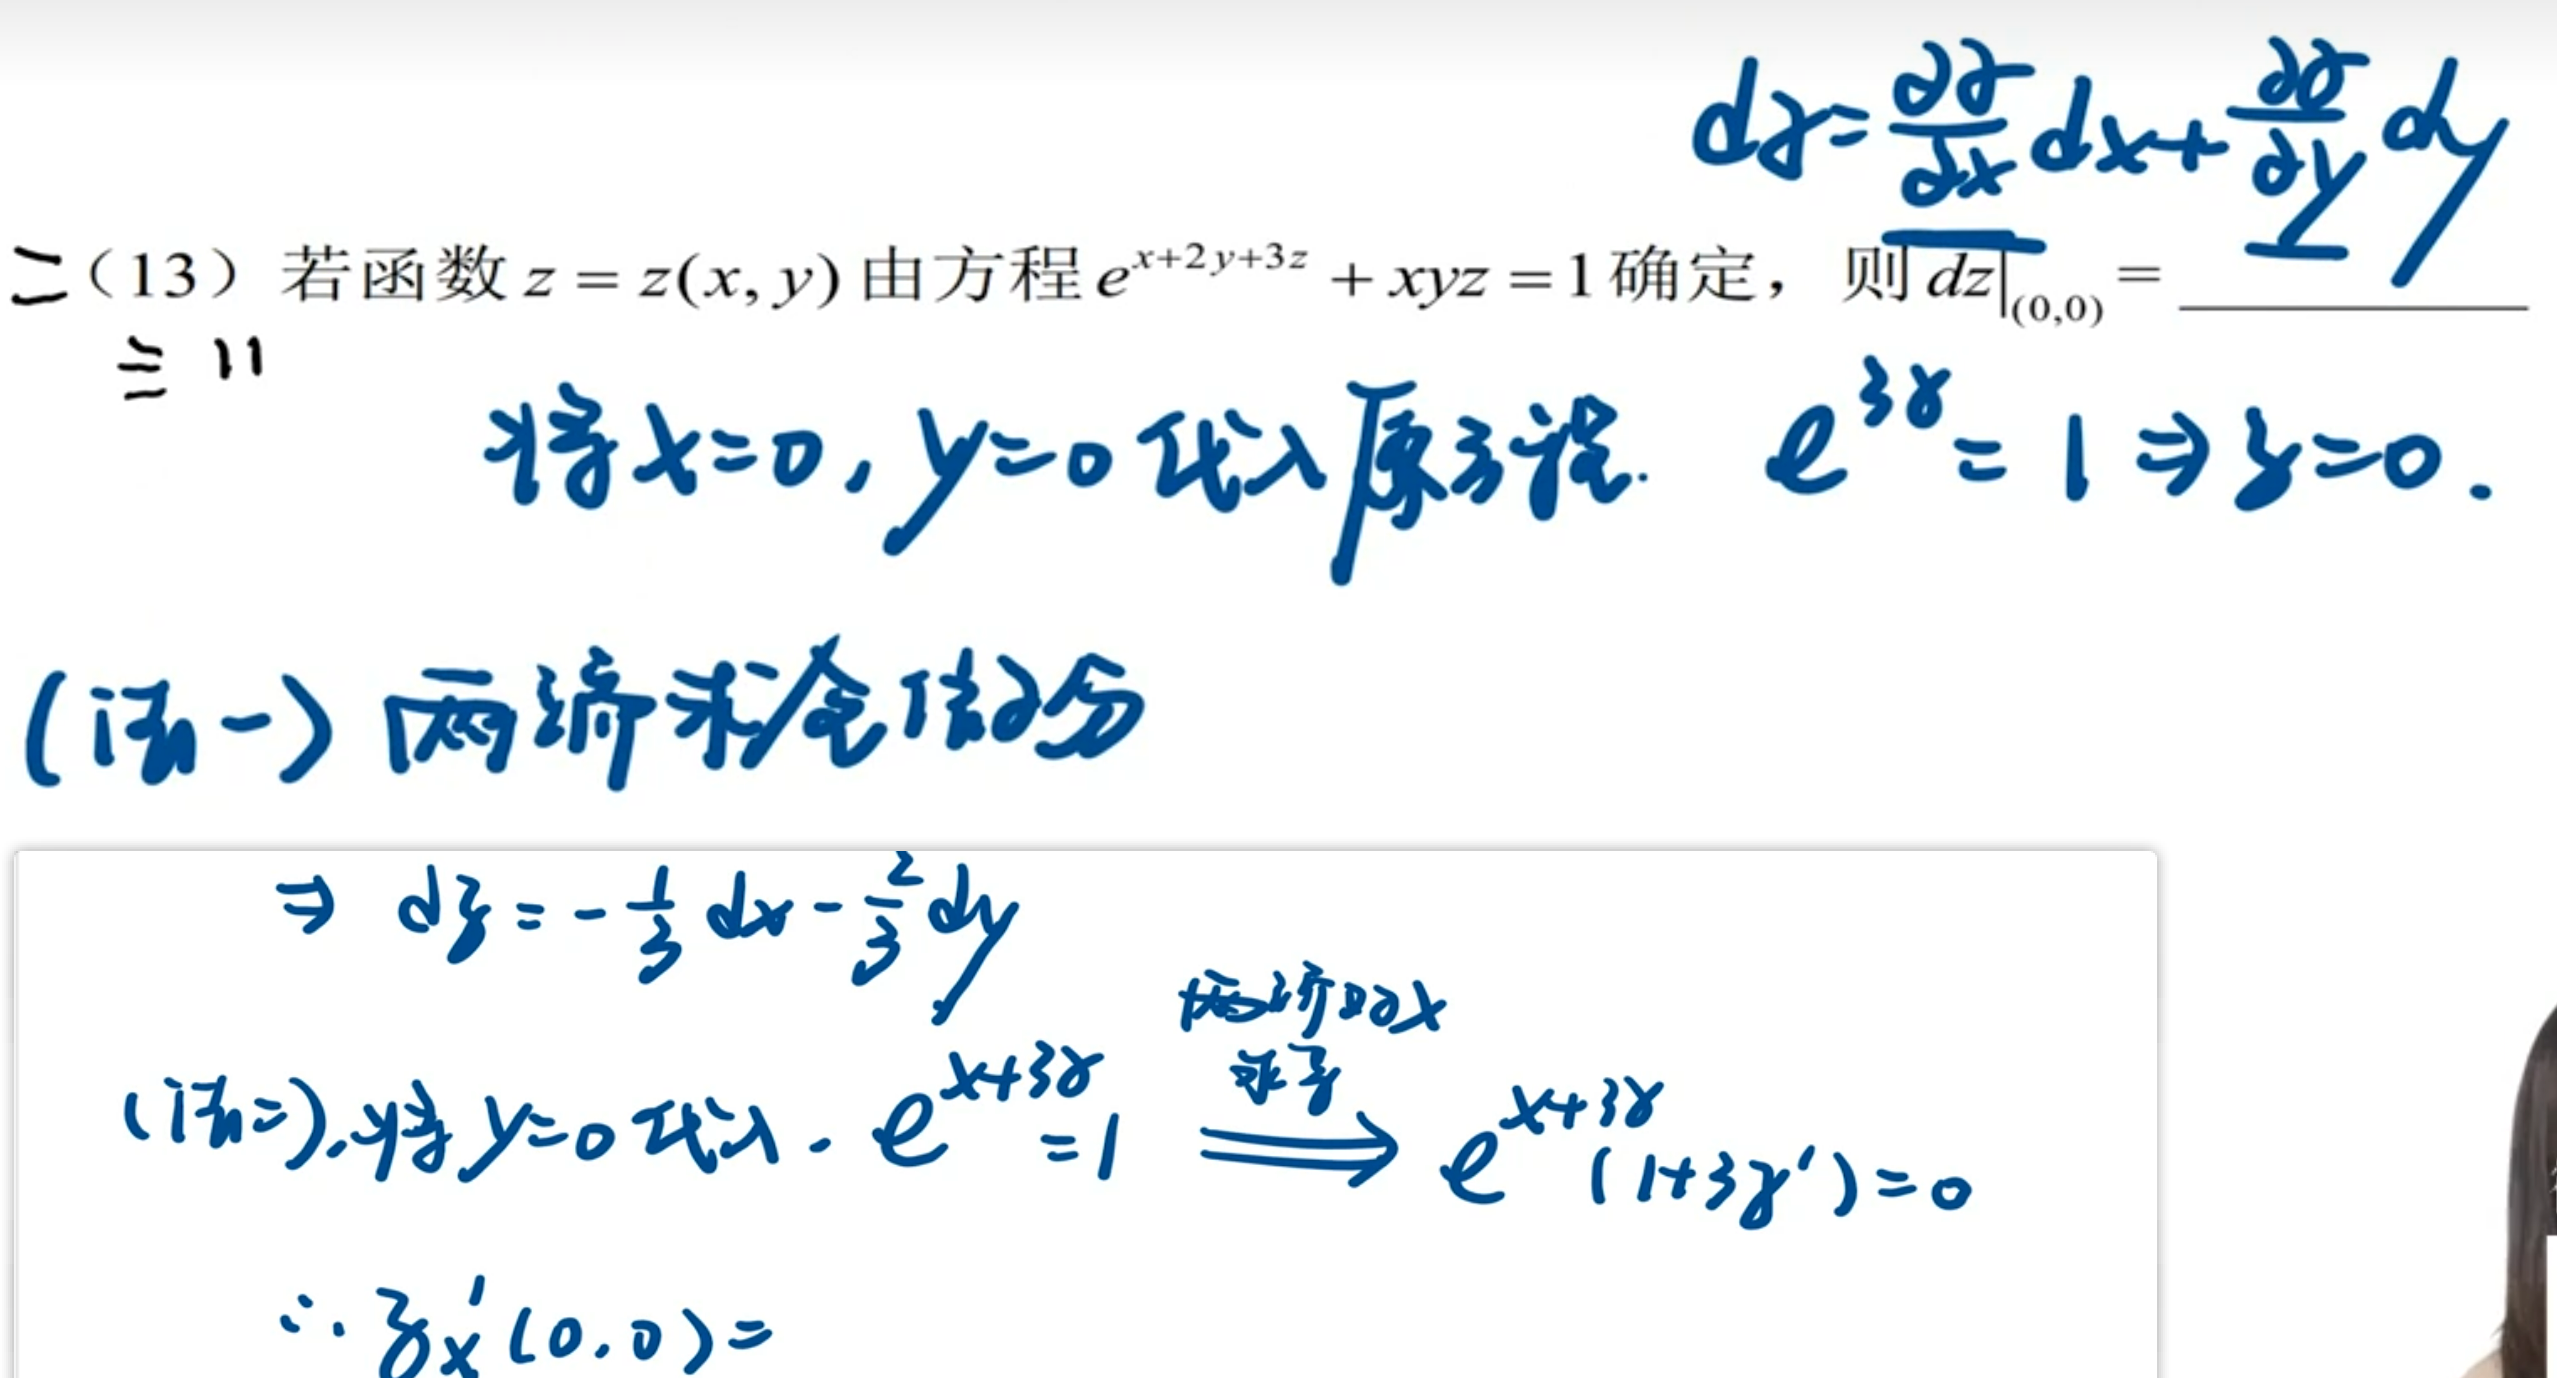 dz=∂z/∂x dx+∂z/∂y dy
二（13）若函数 z = z(x, y) 由方程 e^{x+2y+3z} + xyz = 1 确定，则 dz|_{(0,0)} = ________
三 11
将x=0，y=0代入原方程. e^{3z}=1⇒z=0.
(法一) 两端求全微分
⇒ dz=-1/3 dx-2/3 dy
两端对x
求导
(法二).将y=0代入. e^{x+3z}=1 ⟹ e^{x+3z}(1+3z′)=0
∴ z′x(0,0)=